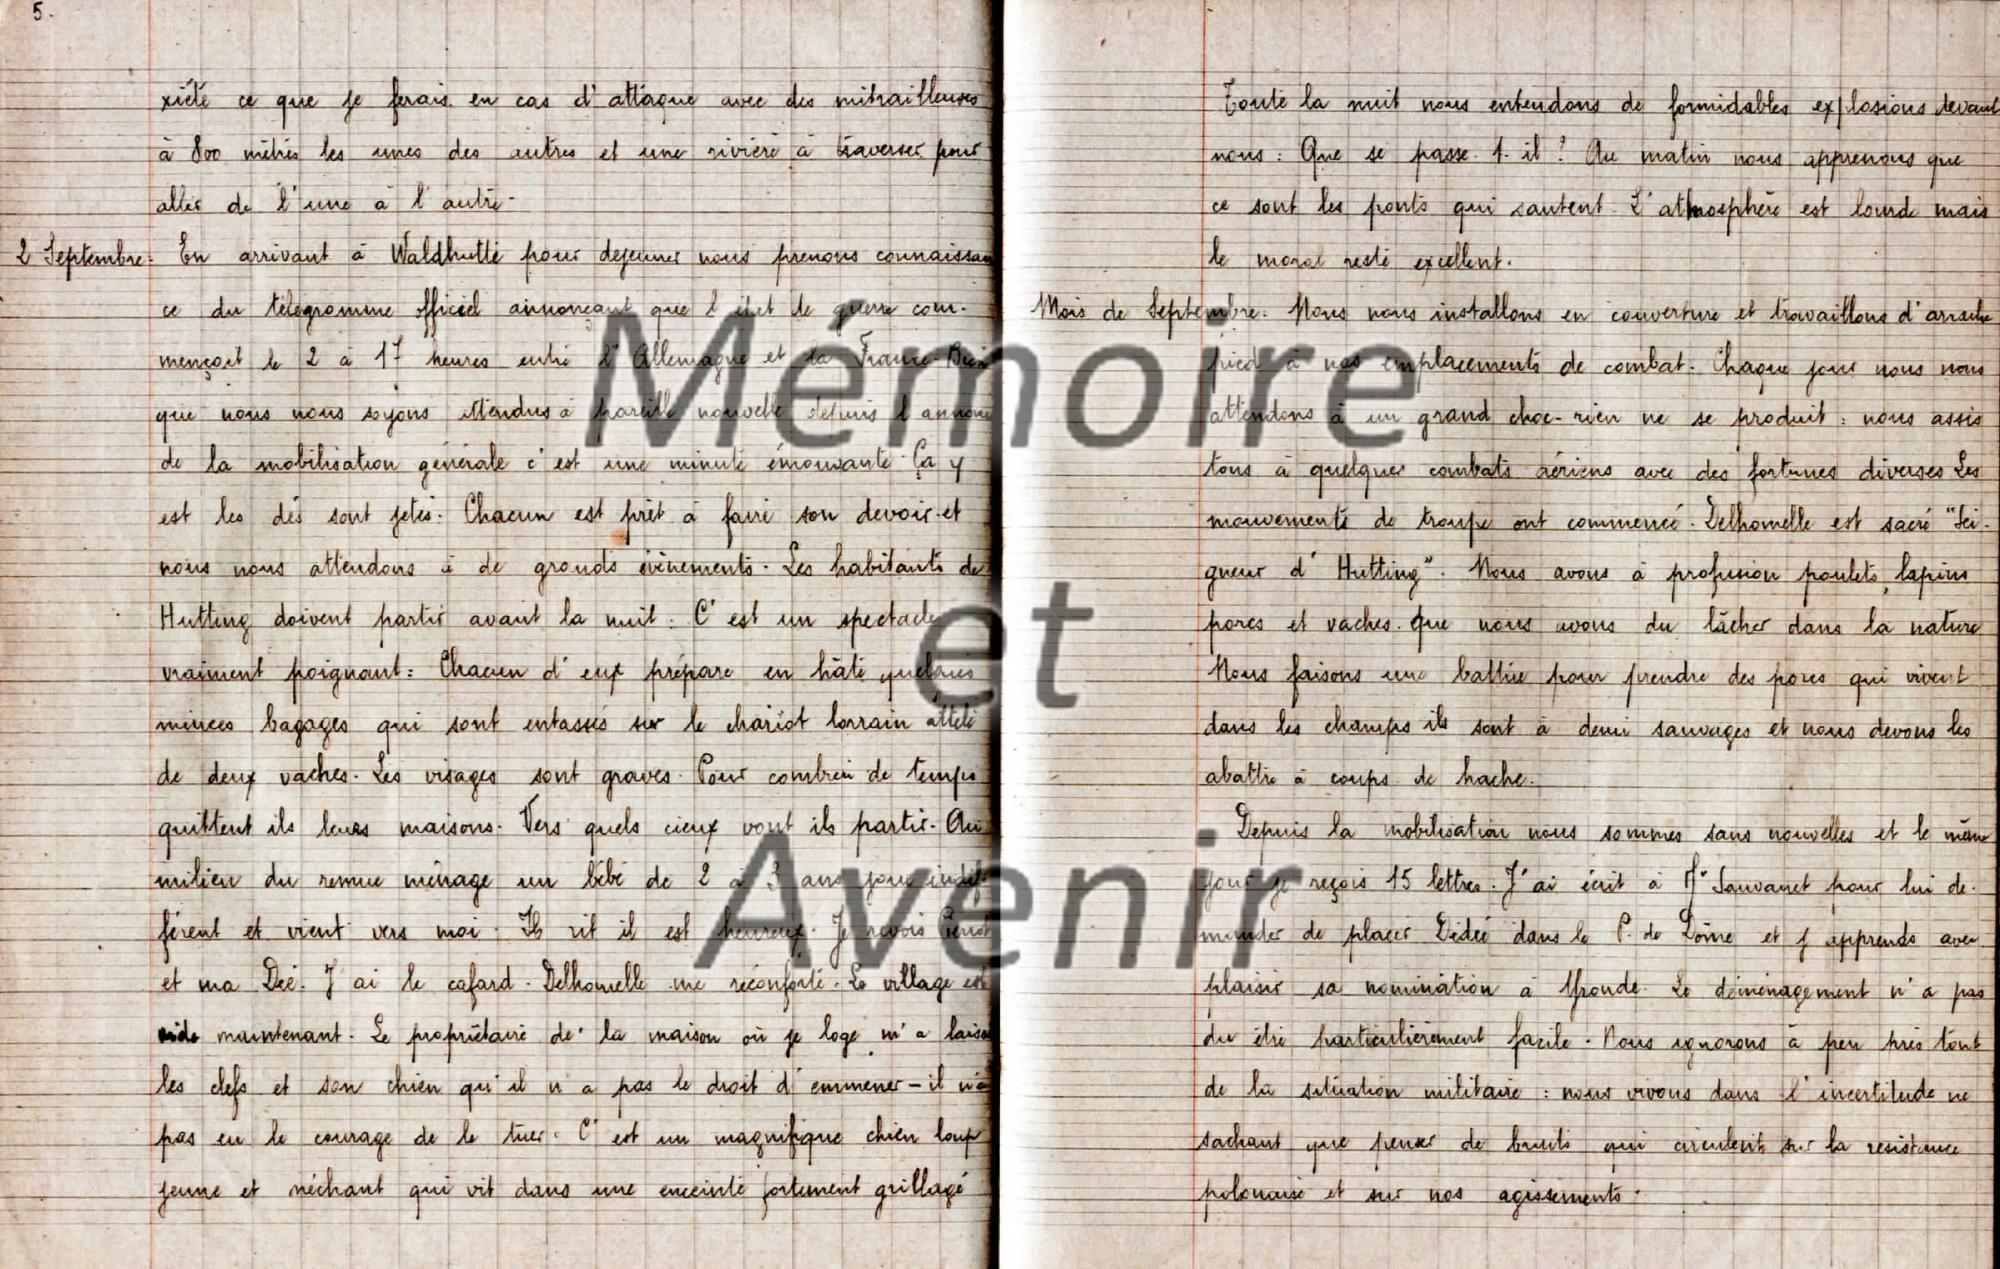 5.
xiété ce que je ferais en cas d'attaque avec des mitrailleuses
à 800 mètres les unes des autres et une rivière à traverser pour
aller de l'une à l'autre.
2 Septembre: En arrivant à Waldhutte pour dejeuner nous prenons connaissan
ce du télégramme officiel annonçant que l'état de guerre com.
mençait le 2 à 17 heures entre l'Allemagne et la France. Bien
que nous nous soyons attendus à pareille nouvelle depuis l'annonce
de la mobilisation générale c'est une minute émouvante. Ça y
est les dés sont jetés. Chacun est prêt à faire son devoir et
nous nous attendons à de grands évènements. Les habitants de
Hutting doivent partir avant la nuit. C'est un spectacle
vraiment poignant: Chacun d'eux prépare en hâte quelques
minces bagages qui sont entassés sur le chariot lorrain attelé
de deux vaches. Les visages sont graves. Pour combien de temps
quittent ils leurs maisons. Vers quels cieux vont ils partir. Au
milieu du remue ménage un bébé de 2 à 3 ans joue indif.
férent et vient vers moi. Il rit il est heureux. Je revois
et ma Dée. J'ai le cafard. Delhomelle me réconforte. Le village est
vide maintenant. Le propriétaire de la maison où je loge m'a laissé
les clefs et son chien qu'il n'a pas le droit d'emmener – il n'a
pas eu le courage de le tuer. C'est un magnifique chien loup
jeune et méchant qui vit dans une enceinte fortement grillagé
Toute la nuit nous entendons de formidables explosions devant
nous: Que se passe.t.il? Au matin nous apprenons que
ce sont les ponts qui sautent. L'atmosphère est lourde mais
le moral reste excellent.
Mois de Septembre. Nous nous installons en couverture et travaillons d'arrache
pied à nos emplacements de combat. Chaque jour nous nous
attendons à un grand choc – rien ne se produit: nous assis
tons à quelques combats aériens avec des fortunes diverses Les
mouvements de troupe ont commencé. Delhomelle est sacré "Sei.
gneur d'Hutting". Nous avons à profusion poulets, lapins
porcs et vaches. que nous avons du lâcher dans la nature
Nous faisons une battue pour prendre des porcs qui vivent
dans les champs ils sont à demi sauvages et nous devons les
abattre à coups de hache.
Depuis la mobilisation nous sommes sans nouvelles et le même
jour je reçois 15 lettres. J'ai écrit à Mr Sauvanet pour lui de.
mander de placer Dédée dans le P. de Dôme et j'apprends avec
plaisir sa nomination à Yronde. Le déménagement n'a pas
du être particulièrement facile. Nous ignorons à peu près tout
de la situation militaire: nous vivons dans l'incertitude ne
sachant que penser de bruits qui circulent sur la resistance
polonaise et sur nos agissements.
Mémoire
et
Avenir